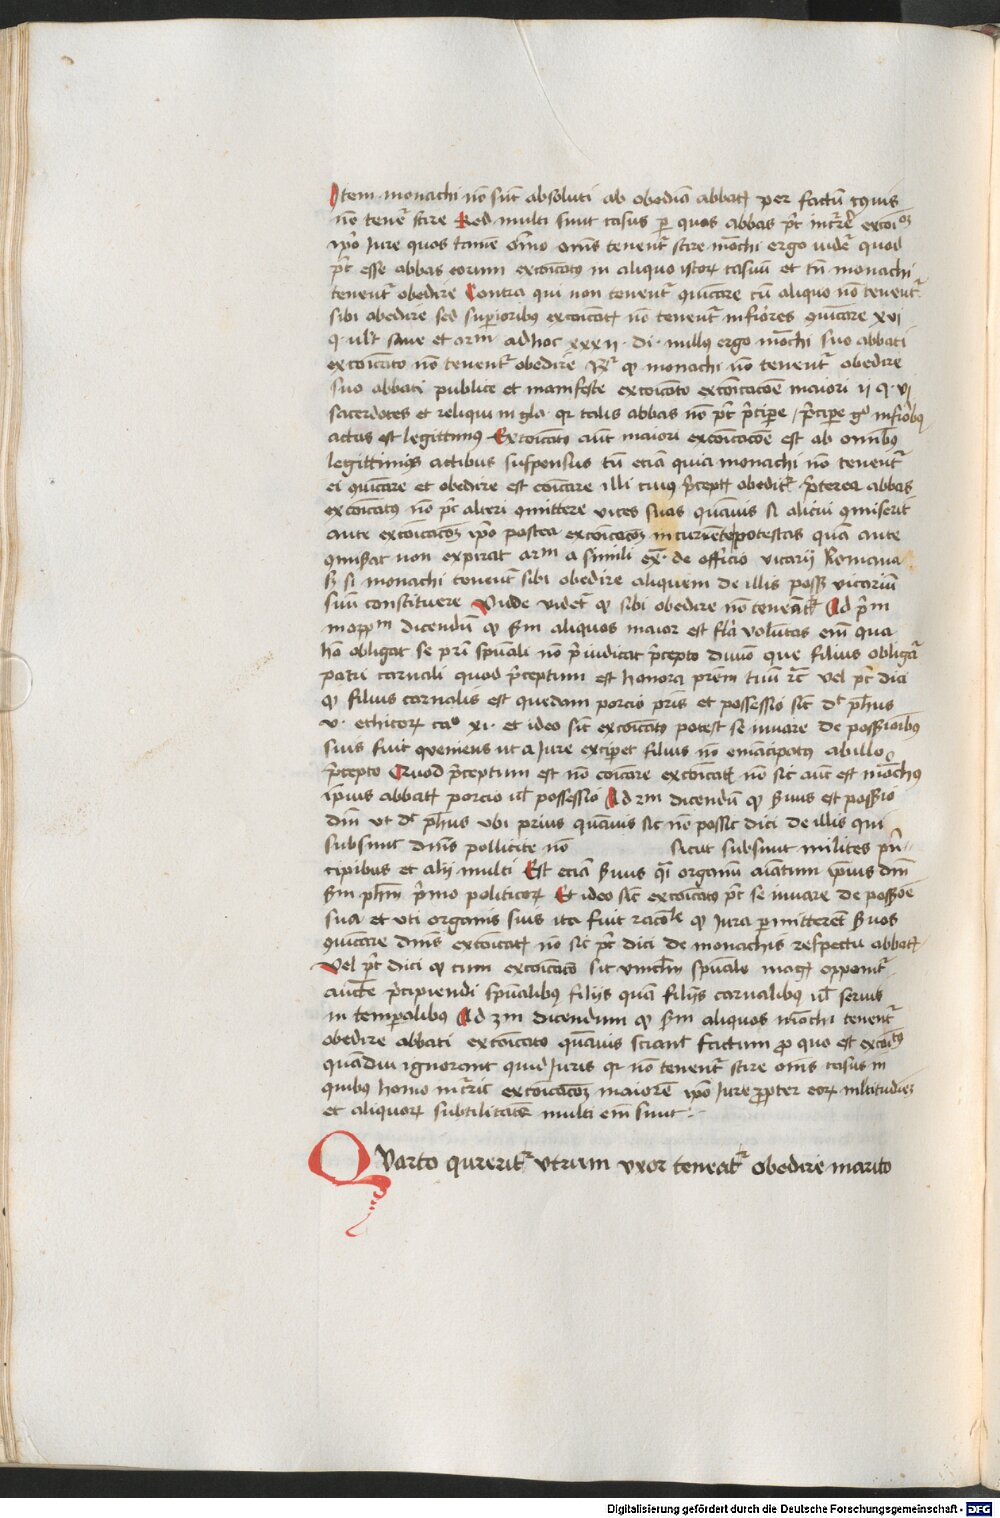 Item monachi nō sūt absoluti ab obediā abbatꝭ per factū cuius
nō tenēr scire Sed multi sunt casus ꝑ quos abbas pt̄ īcr̄rē excōi
ip̄o Jure quos tamē om̄o om̄s tenentr̄ scire mōchi ergo videtr̄ quod
pt̄ esse abbas eorum excōicatꝰ in aliquo istoꝝ casuū et tn̄ monachi
tenentr̄ obedire Contra qui non tenentr̄ cōicare cū aliquo nō tenentr̄
sibi obedire sed superioribꝰ excōicatꝭ nō tenentr̄ inferiores cōicare xvi
q· ult̄ sane et arm̄ ad hoc xxxii· di· nullus ergo mōchi suo abbati
excōicato nō tenentr̄ obedire Rr̄ qꝫ monachi nō tenentr̄ obedire
suo abbati publice et manifeste excōicato excōicacōe maiori ii q· vi
sacerdotes et reliqui in gla· qr talis abbas nō pt̄ p̄cipere
actus est legittimus Excōicatꝰ aūt maiori excōicacōe est ab omībꝰ
legittimis actibus suspensus tū eciā quia monachi nō tenentr̄
ei cōicare et obedire est cōicare illi cuius p̄ceptꝭ obeditr̄ p̄terea abbas
excōicatus nō pt̄ alteri cōmittere vices suas quāuis si alicui cōmiserit
ante excōicacōꝫ ip̄o postea excōicacōꝫ incurrente potestas quā ante
cōmiserat non expirat arm̄ a simili ex̄· de officio vicarij Romana
Sꝫ si monachi tenentr̄ sibi obedire aliquem de illis possꝫ vicariū
suū constituere Vnde videtr̄ qꝫ sibi obedire nō teneātr̄ Ad p̄m
dicendū qꝫ Sm̄ aliquos maior est voluntas eī qua
hō obligat se pr̄i spūali nō p̄iudicat p̄cepto diuīo quo filius obligatr̄
patri carnali quod p̄ceptum est honora pr̄em tuū rc̄ Vel pt̄ dici
qꝫ filius carnalis est quedam porcio pr̄is et possessio sic̄ dt̄ ph̄us
v· ethicoꝝ caᵒ xi· et ideo sic̄ excōicatꝰ potest se iuuare de possessioībꝰ
suis fuit cōueniens ut a Jure exciperet filius nō emācipatus ab illo
p̄cepto Quod p̄ceptum est nō cōicare excōicatꝭ nō sic aūt est mōchus
ipsius abbatꝭ porcio ul̄ possessio Ad 2m dicendū qꝫ Suus est possessio
dn̄i Vt dt̄ ph̄us ubi prius quāuis sic nō possit dici de illis qui
subsunt dn̄is pollitice nō sicut subsunt milites prī=
cipibus et alij multi Est eciā Suus qsi organū aīatum ipsius dn̄i
Sm̄ ph̄m p̄mo politicoꝝ Et ideo sic̄ excōicatꝰ pt̄ se iuuare de possessiōe
sua et vti organis suis ita fuit racōle qꝫ Jura permitterēt Suos
cōicare dn̄is excōicatꝭ nō sic pt̄ dici de monachis respectu abbatꝭ
Vel pt̄ dici qꝫ cum excōicacō sit vinclm̄ spūale magꝭ opponitr̄
auct̄e p̄cipiendi spūalibus filijs quā filijs carnalibus ul̄ seruis
in temporalibus Ad 3m dicendum qꝫ Sm̄ aliquos mōchi tenentr̄
obedire abbati excōicato quāuis sciant factum ꝓ quo est excōicatꝰ
quādiu ignorant quid Juris qr nō tenentr̄ scire om̄s casus in
quibus homo incurrit excōicacōꝫ maiorē ip̄o Jure ꝓpter eoꝝ multitudinē
et aliquoꝝ subtilitatē multi eī sunt
Qvarto queritr̄ Vtrum vxor teneatr̄ obedire marito
Digitalisierung gefördert durch die Deutsche Forschungsgemeinschaft - DFG